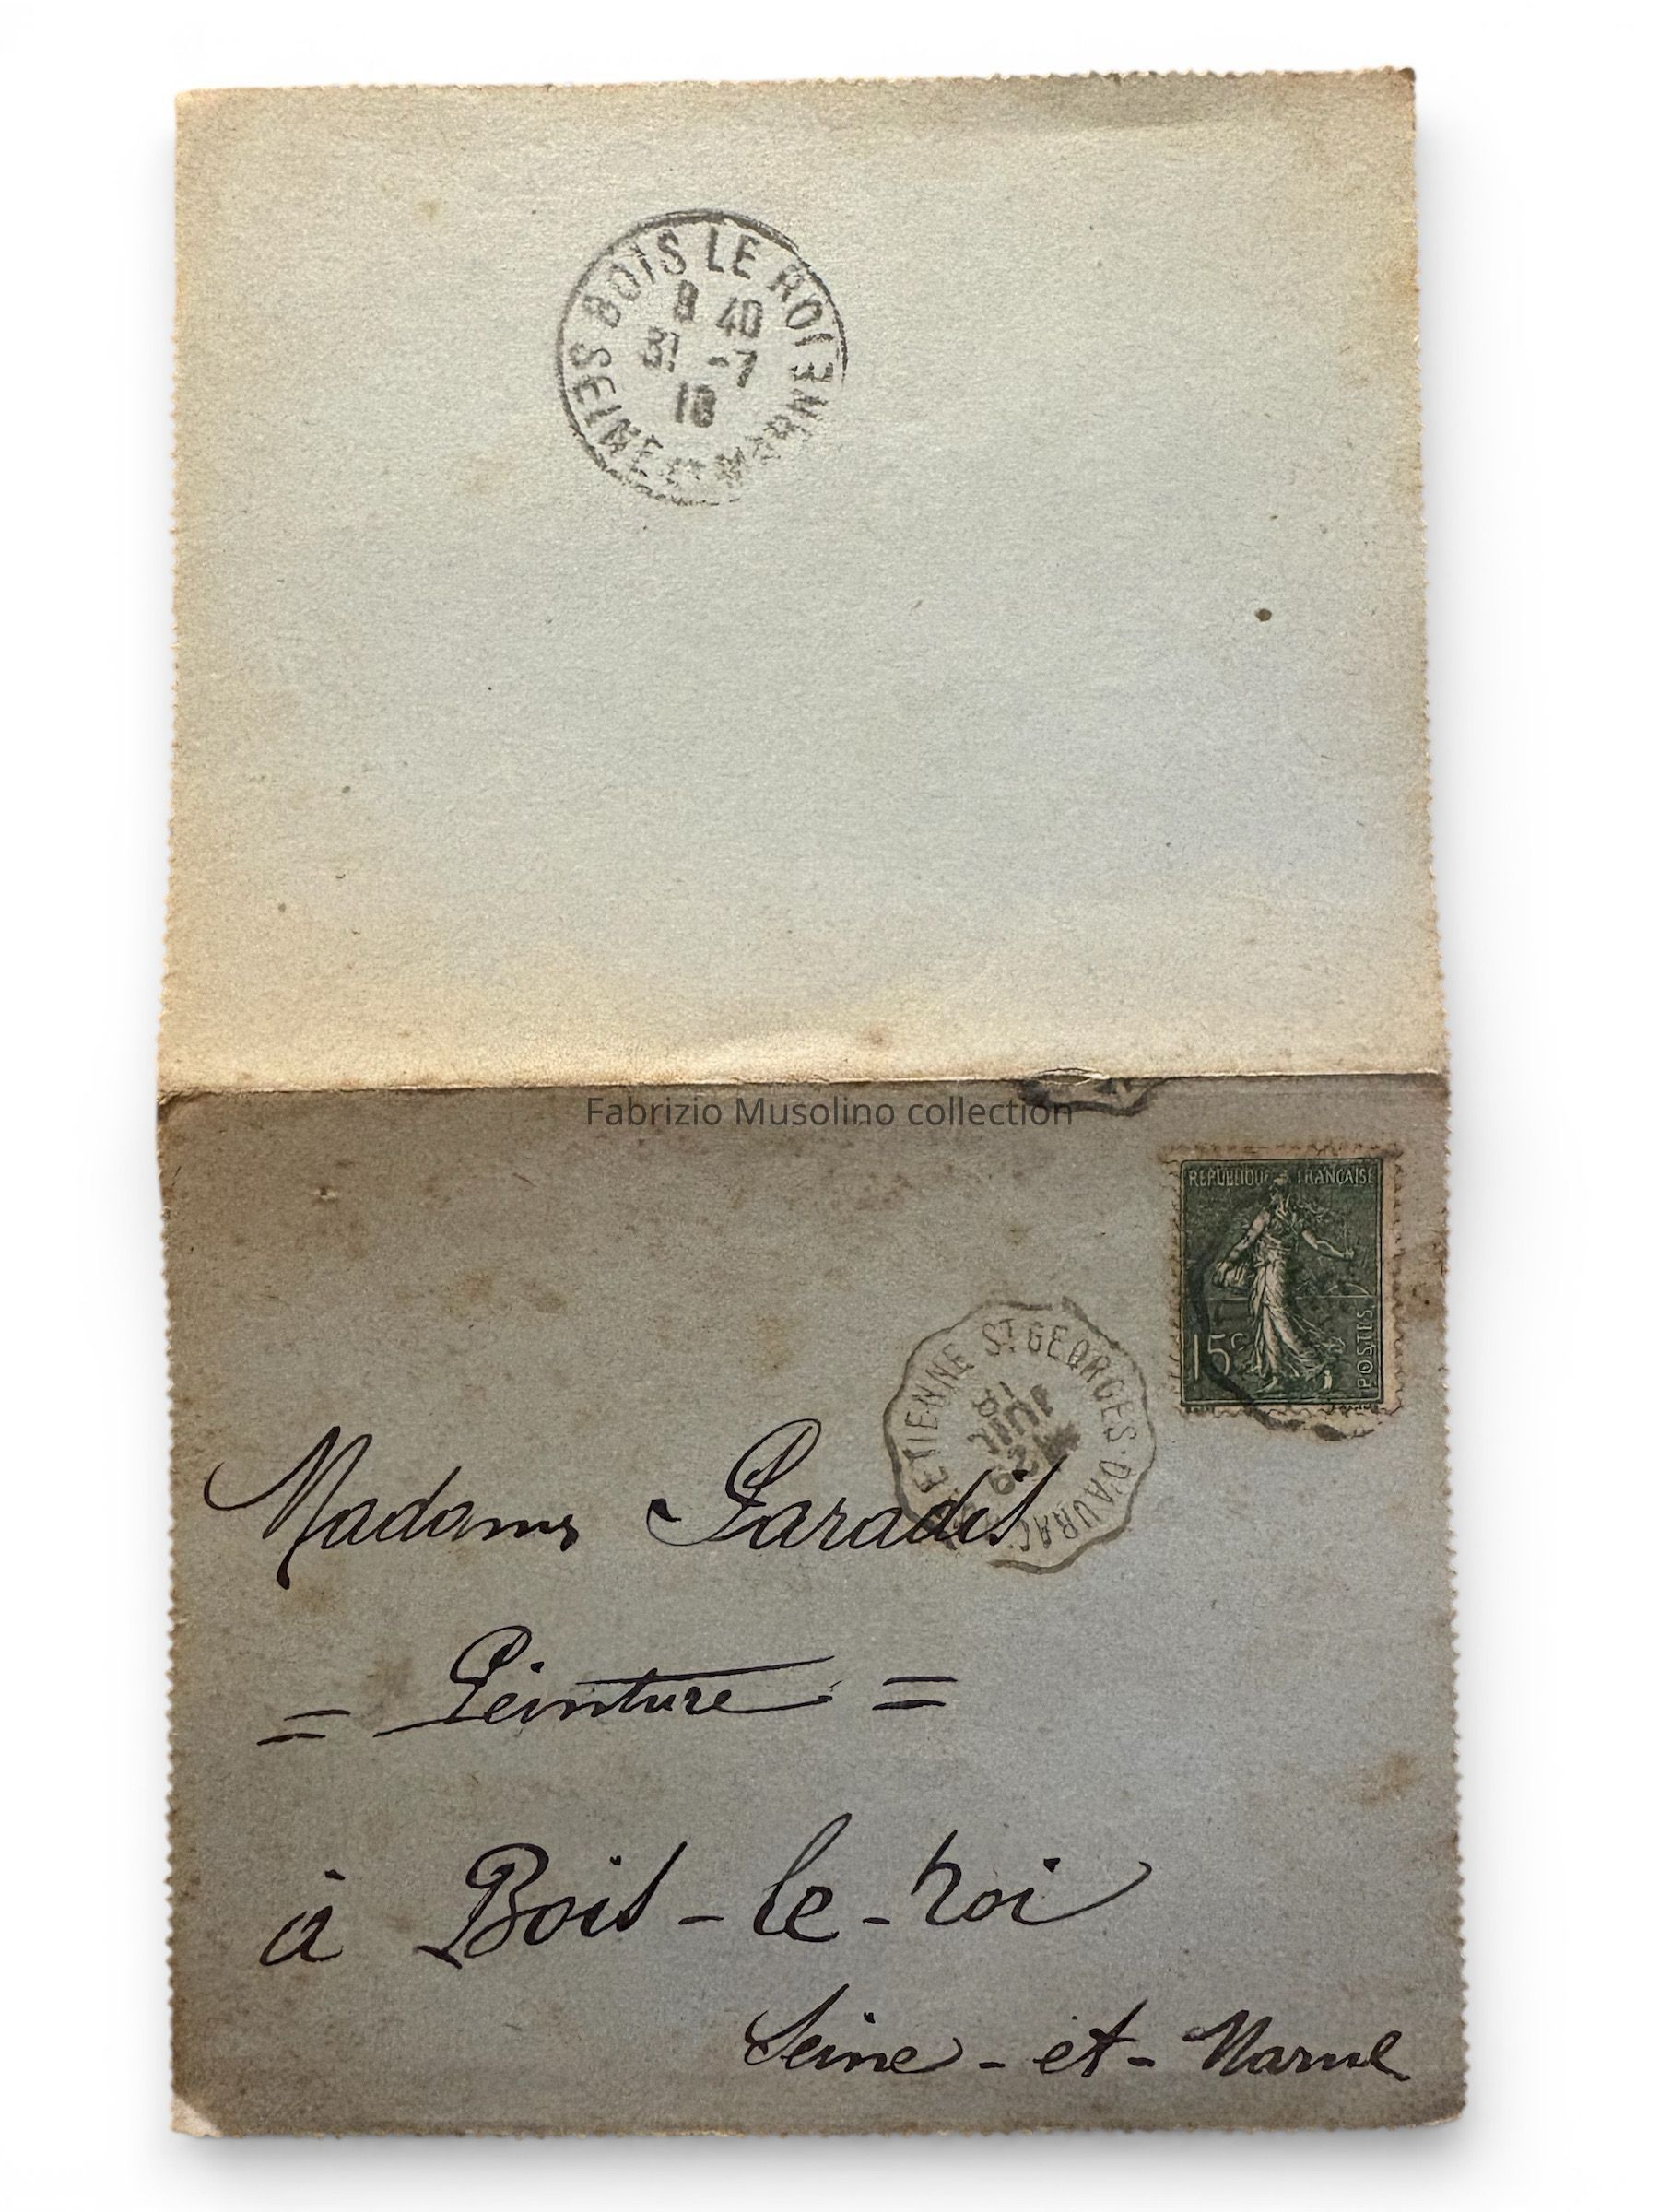 BOIS LE ROI
8 40
31 -7
18
SEINE ET MARNE
Fabrizio Musolino collection
REPUBLIQUE FRANCAISE
15c
POSTES
ETIENNE ST GEORGES-D'AURAC
29
JUIL
18
Madame Paradis
= Peinture =
à Bois-le-roi
Seine-et-Marne